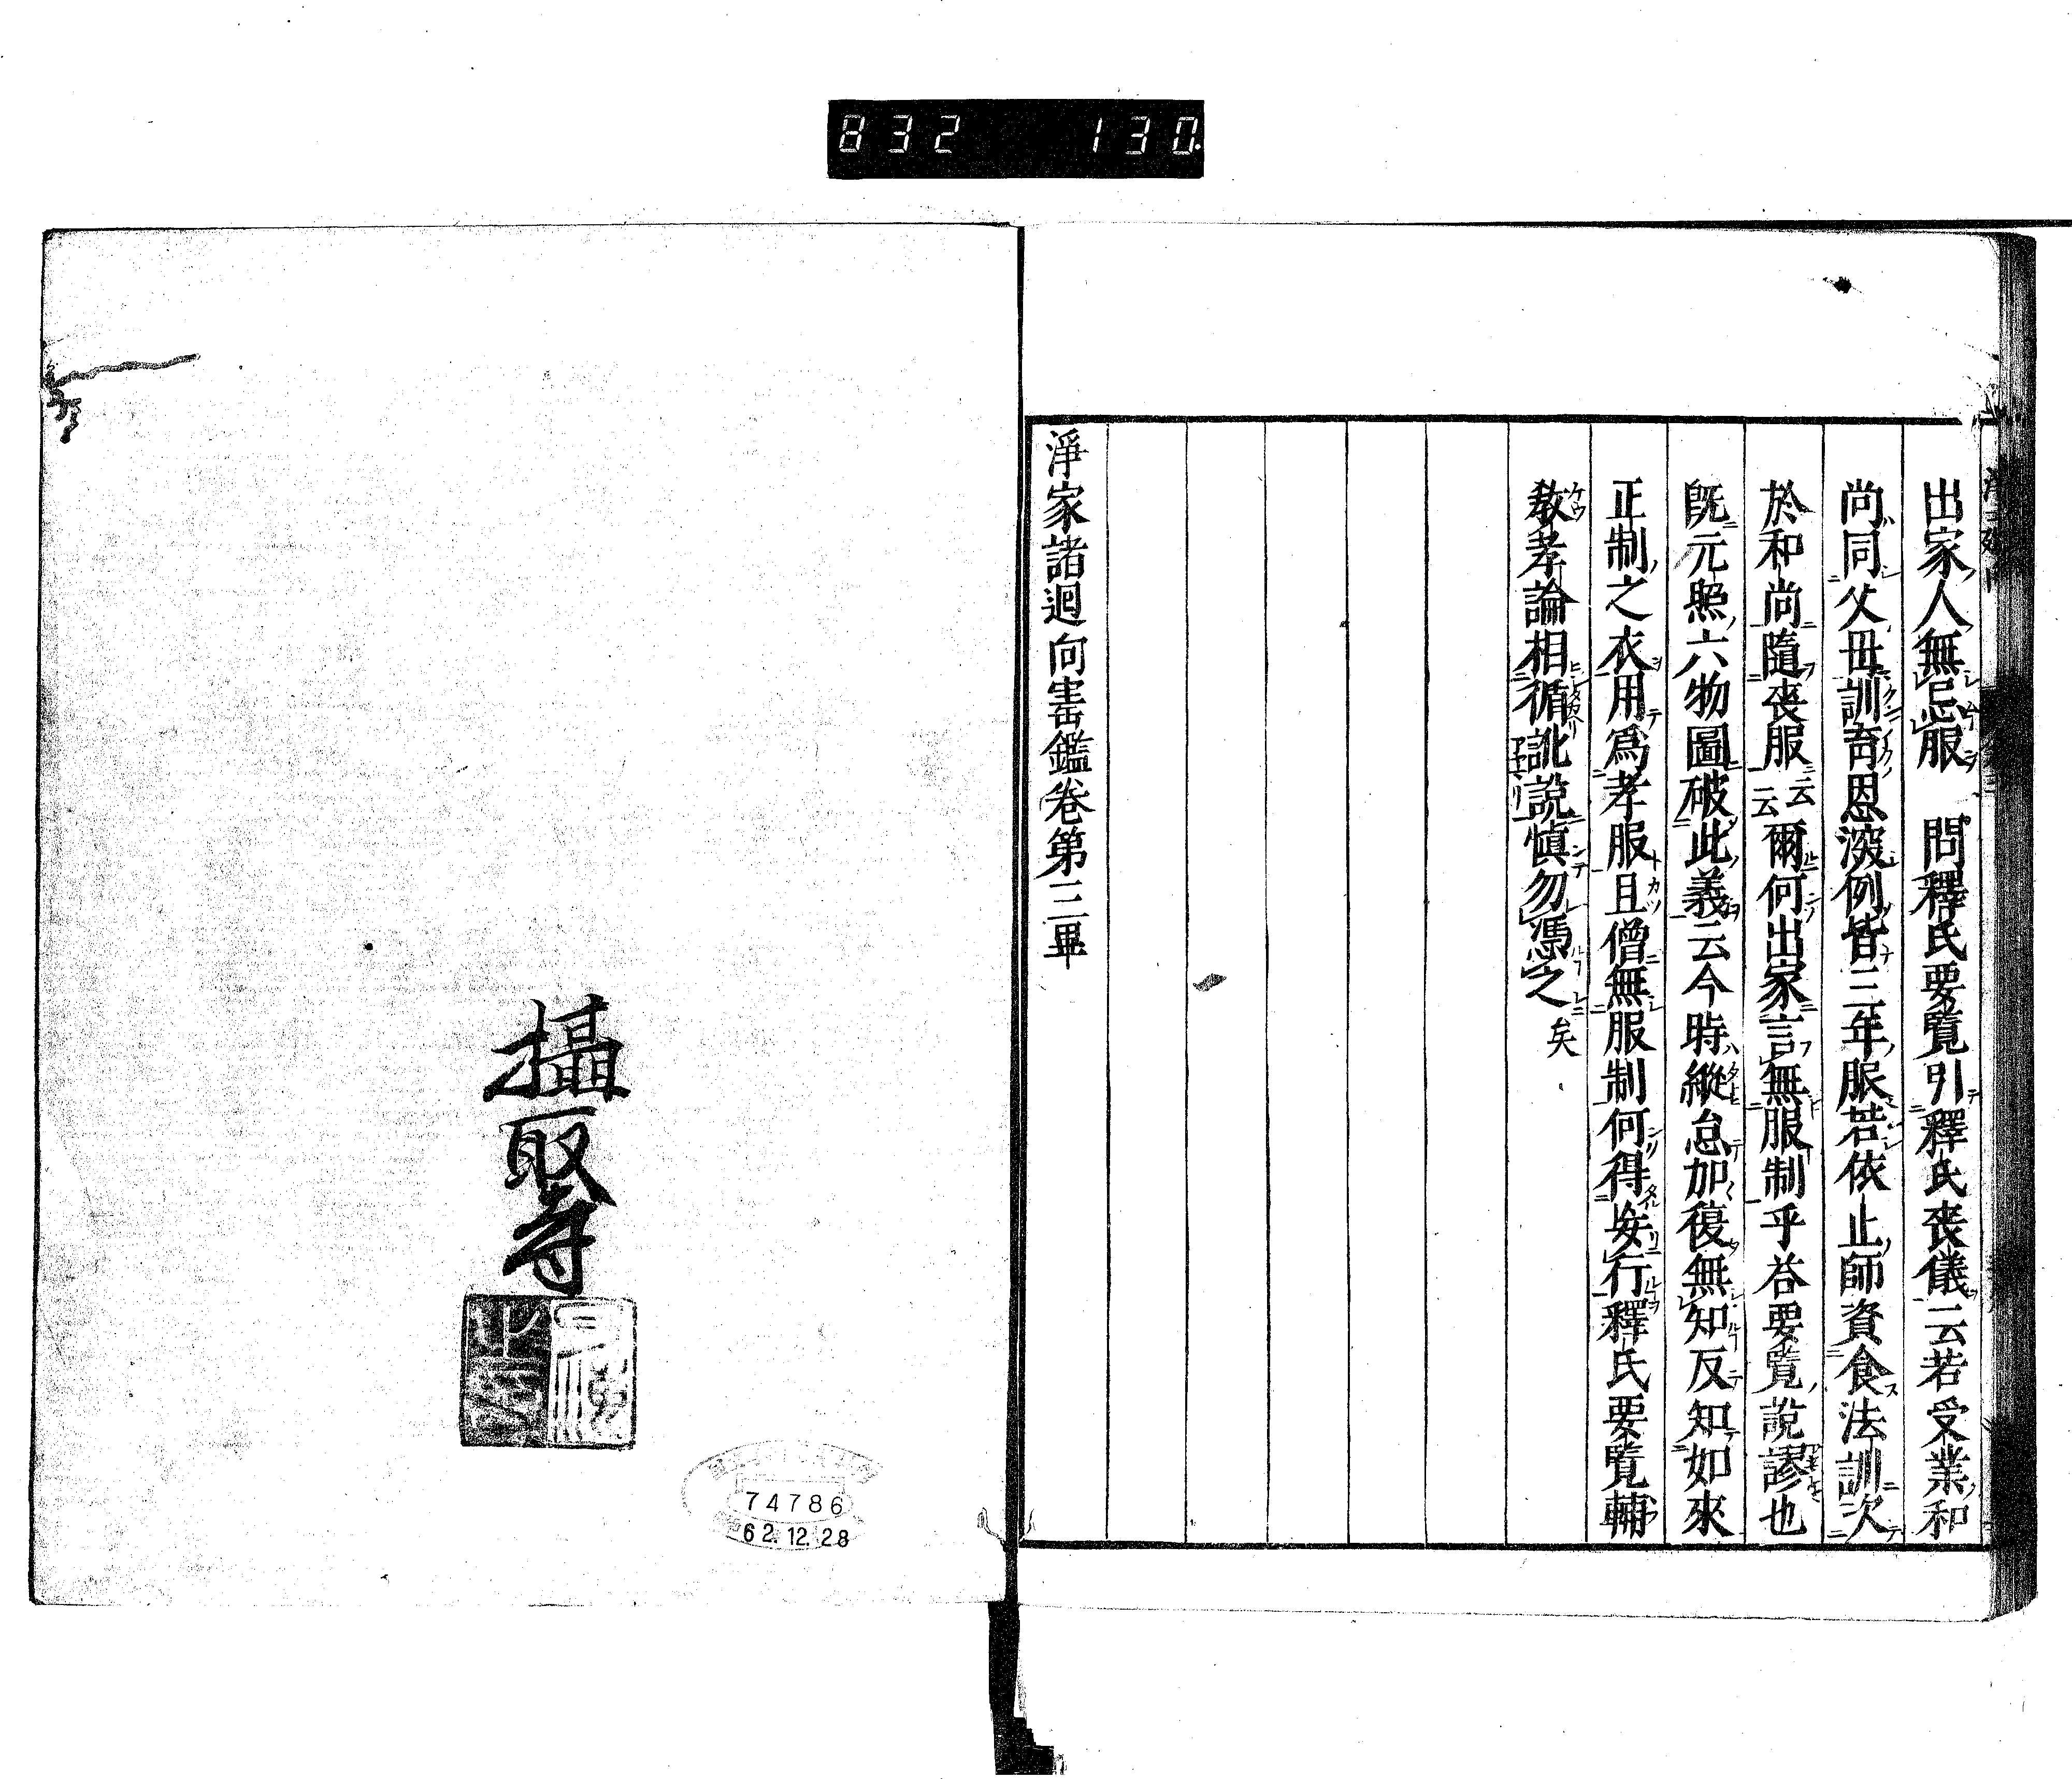 832 130
出家人無忌服 問釋氏要覽引釋氏喪儀云若受業和
尚同父母訓育恩深例皆三年服若依止師資食法訓次
於和尚隨喪服云云爾何出家言無服制乎荅要覽說謬也
既元照六物圖破此義云今時縱怠加復無知反知如來
正制之衣用爲孝服且僧無服制何得妄行釋氏要覽輔
教孝論相循訛說愼勿憑之矣
淨家諸迴向寶鑑卷第三畢
攝取寺
74786
62.12.28